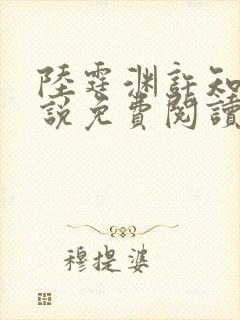 陸霆淵許知
說免費閱讀
穆提婆